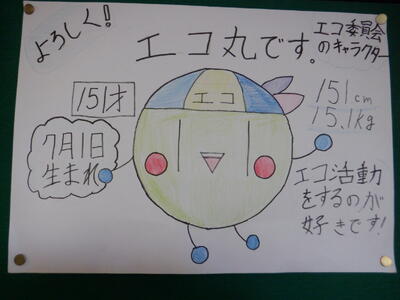 よろしく!
エコ丸です。
エコ委員会
のキャラクター
エコ
151才
151cm
15.1kg
7月1日
生まれ
エコ活動
をするのが
好きです!